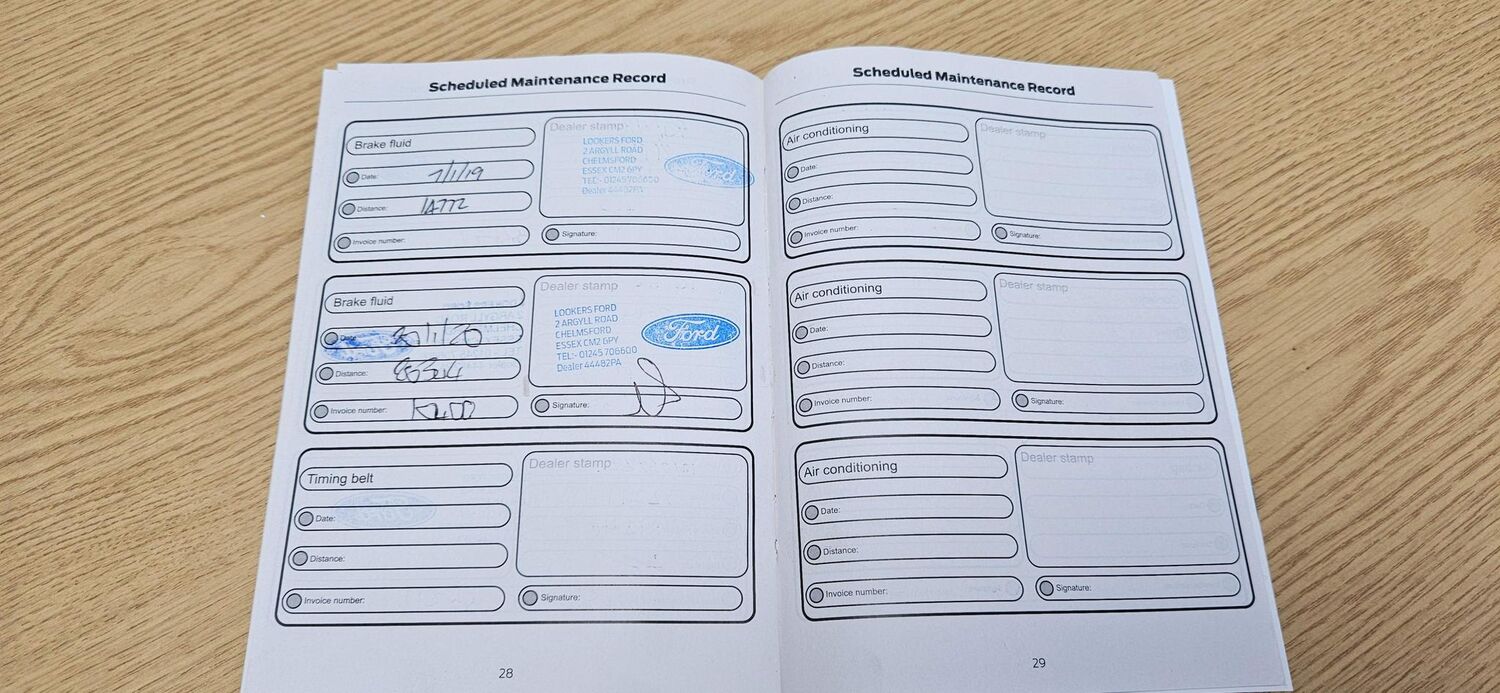 Scheduled Maintenance Record
Brake fluid
Date: 7/1/19
Distance:
Invoice number:
Dealer stamp
LOOKERS FORD
2 ARGYLL ROAD
CHELMSFORD
ESSEX CM2 6PY
TEL:- 01245706600
Dealer 44482PA
Ford
Signature:
Brake fluid
Date:
Distance:
Invoice number:
Dealer stamp
LOOKERS FORD
2 ARGYLL ROAD
CHELMSFORD
ESSEX CM2 6PY
TEL:- 01245706600
Dealer 44482PA
Ford
Signature:
Timing belt
Date:
Distance:
Invoice number:
Dealer stamp
Signature:
28
Scheduled Maintenance Record
Air conditioning
Date:
Distance:
Invoice number:
Dealer stamp
Signature:
Air conditioning
Date:
Distance:
Invoice number:
Dealer stamp
Signature:
Air conditioning
Date:
Distance:
Invoice number:
Dealer stamp
Signature:
29